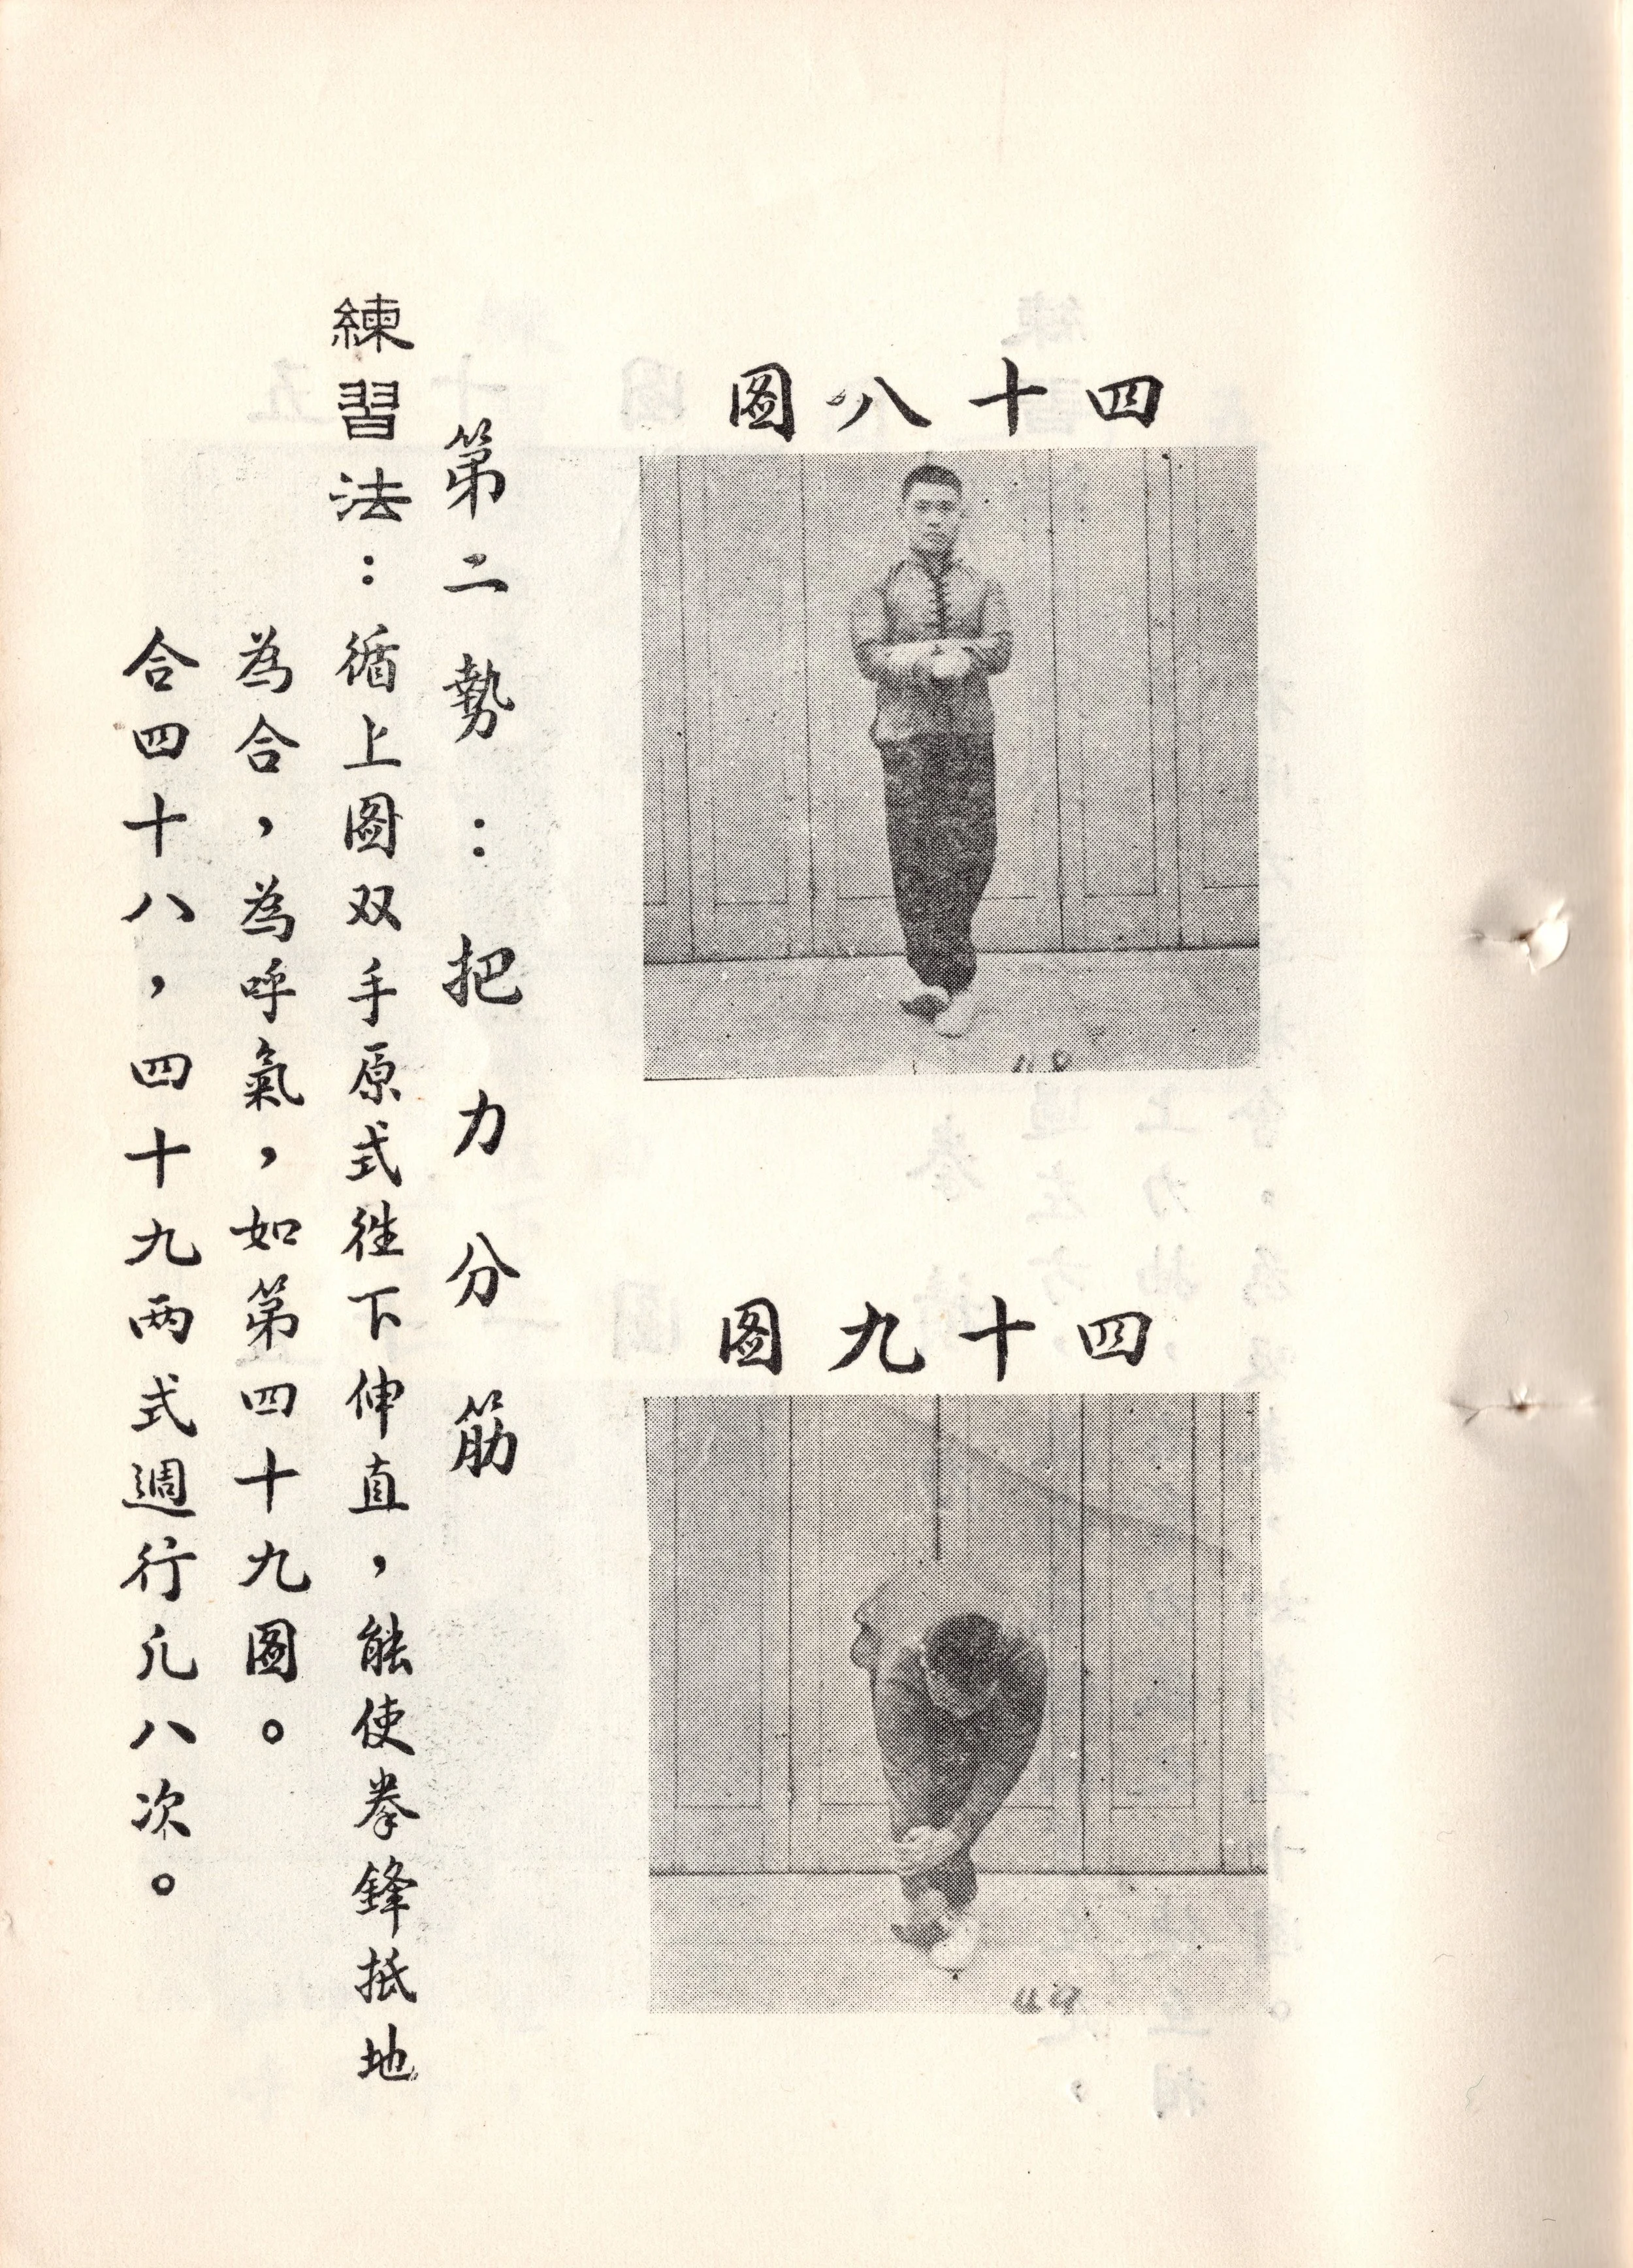 四十八图
四十九图
第二勢：把力分筋
練習法：循上图双手原式徃下伸直，能使拳鋒抵地
為合，為呼氣，如第四十九图。
合四十八，四十九两式週行凢八次。
49